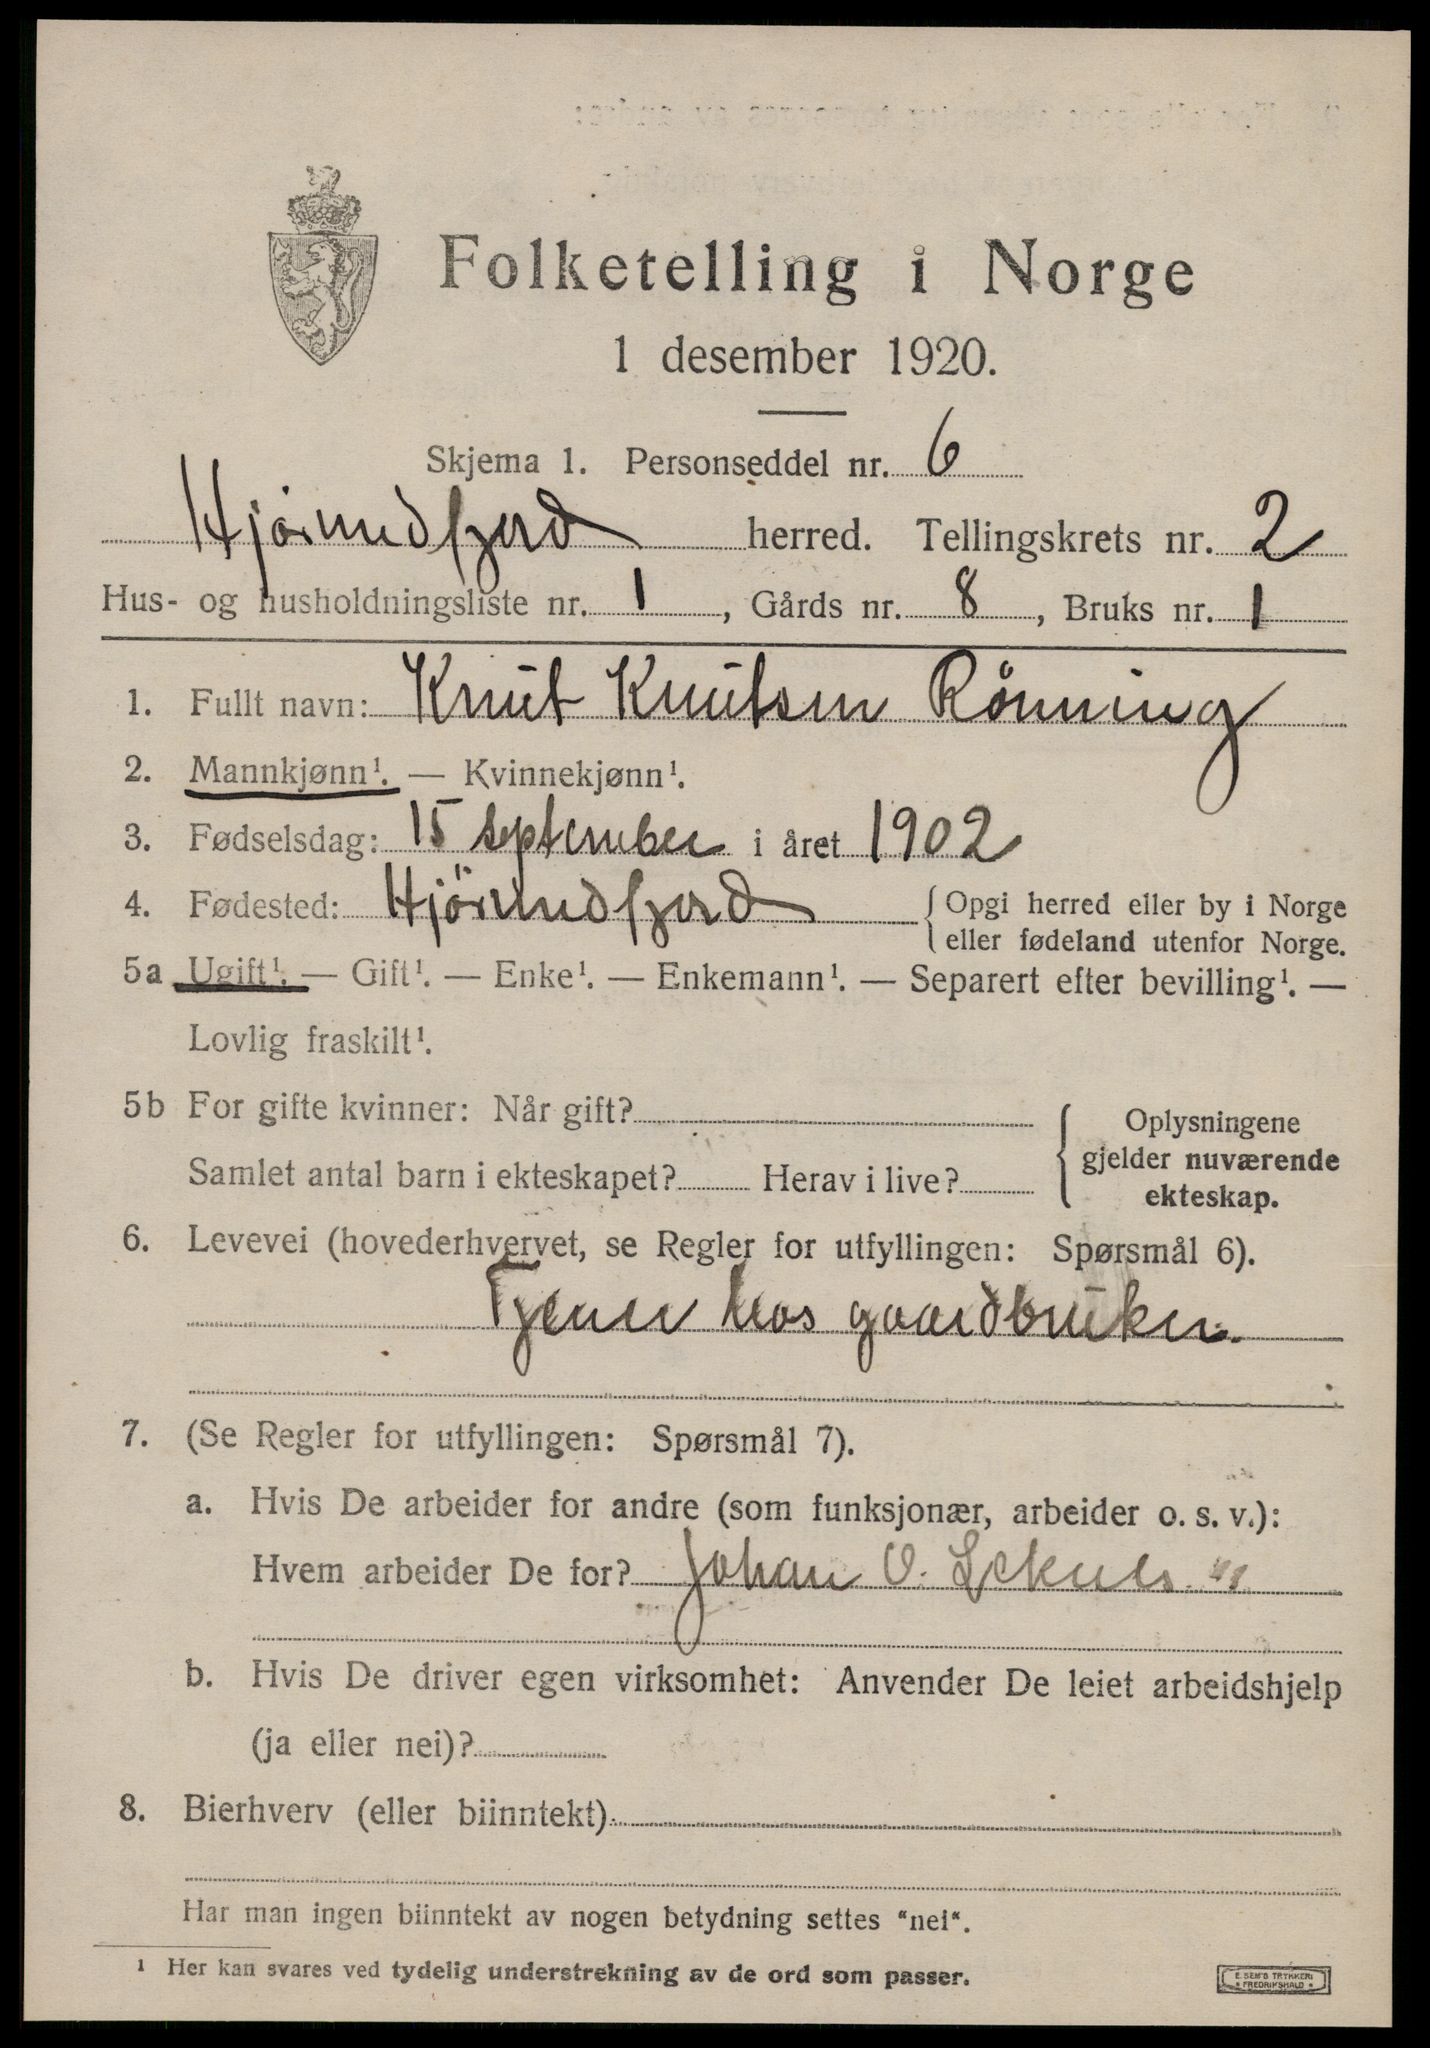 Folketelling i Norge
1 desember 1920.
Skjema 1. Personseddel nr. 6
Hjørundfjord herred. Tellingskrets nr. 2
Hus- og husholdningsliste nr. 1, Gårds nr. 8, Bruks nr. 1
1. Fullt navn: Knut Knutsen Rönning
2. Mannkjønn¹. — Kvinnekjønn¹.
3. Fødselsdag: 15 september i året 1902
4. Fødested: Hjörundfjord { Opgi herred eller by i Norge
eller fødeland utenfor Norge.
5a Ugift¹. — Gift¹. — Enke¹. — Enkemann¹. — Separert efter bevilling¹. —
Lovlig fraskilt¹.
5b For gifte kvinner: Når gift?
Samlet antal barn i ekteskapet? Herav i live?
{ Oplysningene
gjelder nuværende
ekteskap.
6. Levevei (hovederhvervet, se Regler for utfyllingen: Spørsmål 6).
Tjener hos gaardbruker.
7. (Se Regler for utfyllingen: Spørsmål 7).
a. Hvis De arbeider for andre (som funksjonær, arbeider o. s. v.):
Hvem arbeider De for? Johan O.
b. Hvis De driver egen virksomhet: Anvender De leiet arbeidshjelp
(ja eller nei)?
8. Bierhverv (eller biinntekt)
Har man ingen biinntekt av nogen betydning settes “nei“.
¹ Her kan svares ved tydelig understrekning av de ord som passer.
E. SEM'S TRYKKERI
FREDRIKSHALD